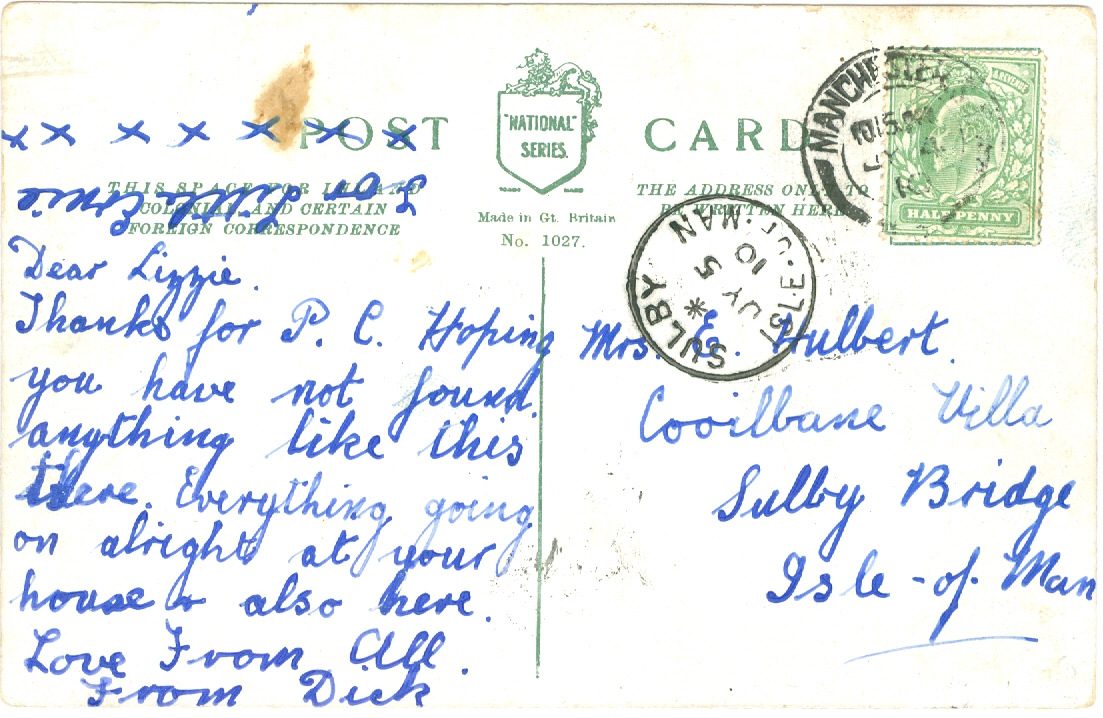 POST CARD
"NATIONAL"
SERIES.
TRADE MARK
THIS SPACE FOR INLAND
COLONIAL AND CERTAIN
FOREIGN CORRESPONDENCE
Made in Gt. Britain
No. 1027.
THE ADDRESS ONLY TO
BE WRITTEN HERE
MANCHESTER
10 15 PM
HALFPENNY
SULBY
ISLE·OF·MAN
JY 5
10
x x x x x x x
For
Dear Lizzie.
Thanks for P. C. Hoping
you have not found
anything like this
there. Everything going
on alright at your
house & also here.
Love From All.
From Dick
Mrs. E. Hulbert.
Cooilbane Villa
Sulby Bridge
Isle-of-Man